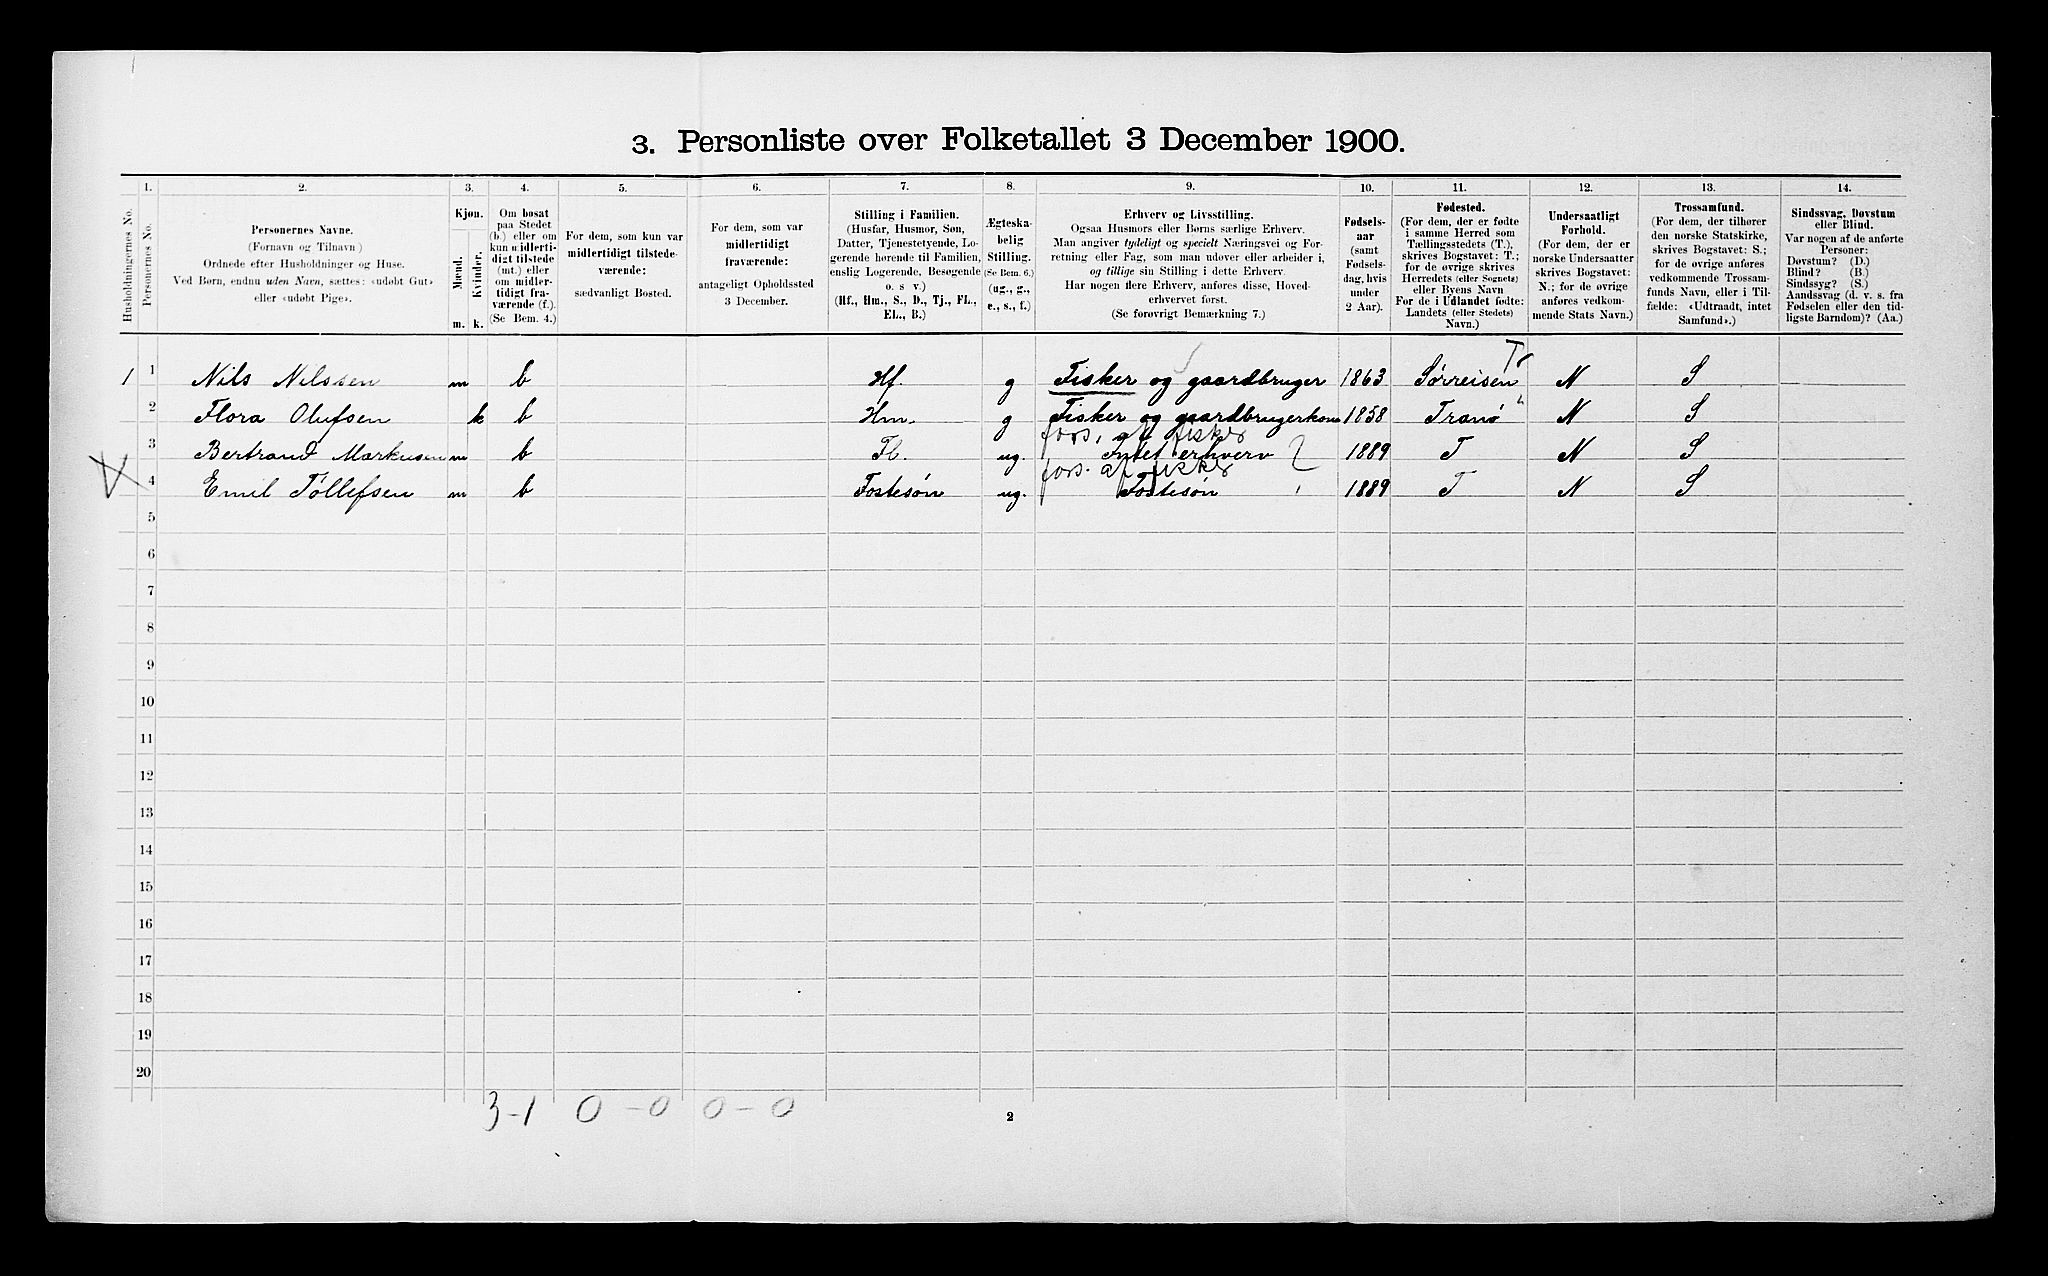 3. Personliste over Folketallet 3 December 1900.
Husholdningernes No.
1. Personernes No.
2. Personernes Navne.
(Fornavn og Tilnavn)
Ordnede efter Husholdninger og Huse.
Ved Børn, endnu uden Navn, sættes: «udøbt Gut»
eller «udøbt Pige».
3. Kjøn.
Mænd. m.
Kvinder. k.
4. Om bosat
paa Stedet
(b.) eller om
kun midlerti-
digt tilstede
(mt.) eller
om midler-
tidigt fra-
værende (f.).
(Se Bem. 4.)
5. For dem, som kun var
midlertidigt tilstede-
værende:
sædvanligt Bosted.
6. For dem, som var
midlertidigt
fraværende:
antageligt Opholdssted
3 December.
7. Stilling i Familien.
(Husfar, Husmor, Søn,
Datter, Tjenestetyende, Lo-
gerende hørende til Familien,
enslig Logerende, Besøgende
o. s v.)
(Hf., Hm., S., D., Tj., FL.,
EL., B.)
8. Ægteska-
belig
Stilling.
(Se Bem. 6.)
(ug., g.,
e., s., f.)
9. Erhverv og Livsstilling.
Ogsaa Husmors eller Børns særlige Erhverv.
Man angiver tydeligt og specielt Næringsvei og For-
retning eller Fag, som man udøver eller arbeider i,
og tillige sin Stilling i dette Erhverv.
Har nogen flere Erhverv, anføres disse, Hoved-
erhvervet først.
(Se forøvrigt Bemærkning 7.)
10. Fødsels-
aar
(samt
Fødsels-
dag, hvis
under
2 Aar).
11. Fødested.
(For dem, der er fødte
i samme Herred som
Tællingsstedets (T.),
skrives Bogstavet: T.;
for de øvrige skrives
Herredets (eller Sognets)
eller Byens Navn
For de i Udlandet fødte:
Landets (eller Stedets)
Navn.)
12. Undersaatligt
Forhold.
(For dem, der er
norske Undersaatter
skrives Bogstavet:
N.; for de øvrige
anføres vedkom-
mende Stats Navn.)
13. Trossamfund.
(For dem, der tilhører
den norske Statskirke,
skrives Bogstavet: S.;
for de øvrige anføres
vedkommende Trossam-
funds Navn, eller i Til-
fælde: «Udtraadt, intet
Samfund».)
14. Sindssvag, Døvstum
eller Blind.
Var nogen af de anførte
Personer:
Døvstum? (D.)
Blind? (B.)
Sindssyg? (S.)
Aandssvag (d. v. s. fra
Fødselen eller den tid-
ligste Barndom)? (Aa.)
1 1 Nils Nilssen m b Hf. g Fisker og gaardbruger 1863 Sørreisen Tr N S
2 Flora Olufsen k b Hm. g Fisker og gaardbrugerkone 1858 Tranø " N S
fors. af fisker
3 Bertrand Markusen m b Fl. ug. Intet erhverv 1889 T N S
fors. af fisker
4 Emil Tøllefsen m b Fostesøn ug. Fostesøn 1889 T N S
5
6
7
8
9
10
11
12
13
14
15
16
17
18
19
20
3-1 0-0 0-0
2